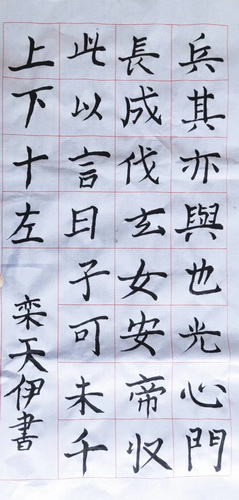 兵其亦與也光心門
長成伐玄女安帝収
此以言日子可未千
上下十左
栾天伊書